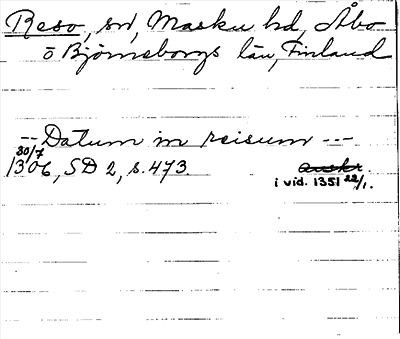 Reso, sn, Masku hd, Åbo
o Björneborgs län, Finland
-- Datum in reisum ---
30/7
1306, SD 2, s. 473. avskr.
i vid. 1351 22/1.